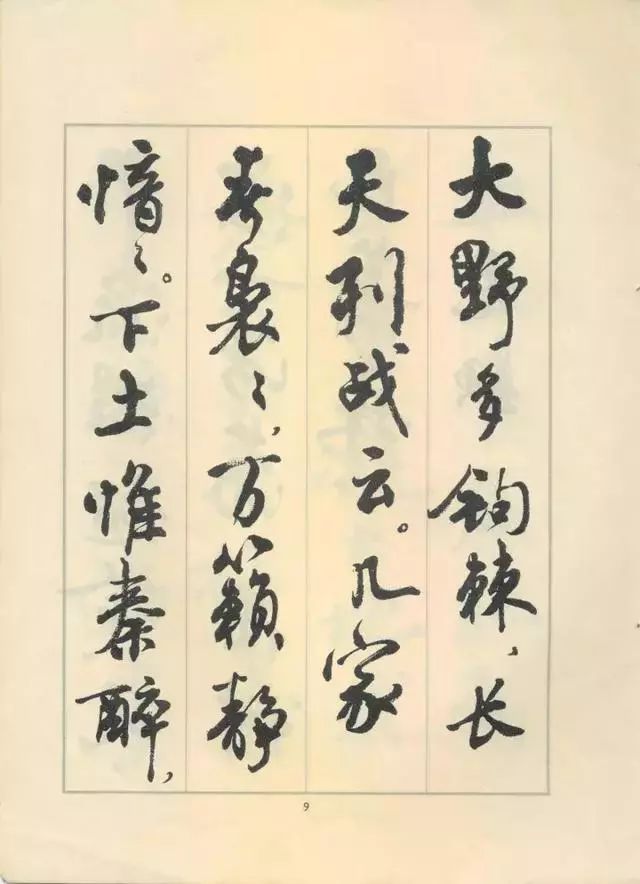 大野多钩棘，长
天列战云。几家
春袅〻，万籁静
愔〻。下土惟秦醉，
9